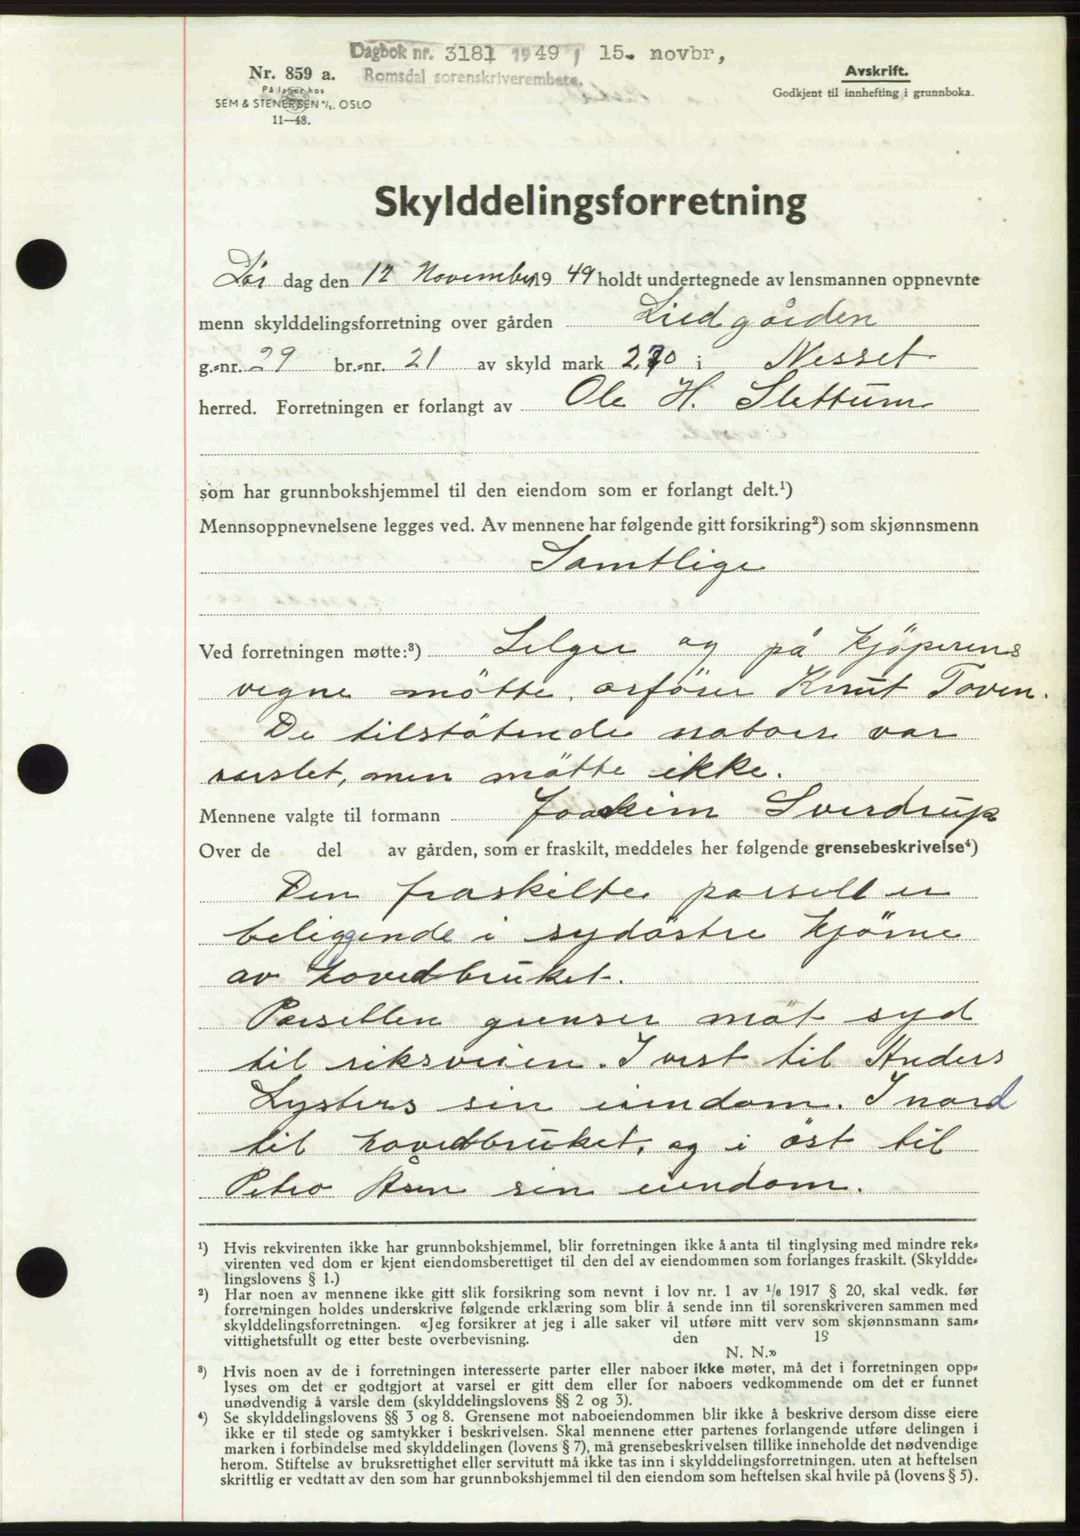 Dagbok nr. 3181 1949, 15. novbr,
Romsdal sorenskriverembete.
Nr. 859 a.
På lager hos
SEM & STENERSEN A/S. OSLO
11—48.
Avskrift.
Godkjent til innhefting i grunnboka.
Skylddelingsforretning
Lør dag den 12 November 1949 holdt undertegnede av lensmannen oppnevnte
menn skylddelingsforretning over gården Liedgården
g.-nr. 29 br.-nr. 21 av skyld mark 2,70 i Nesset
herred. Forretningen er forlangt av Ole H. Slettum
som har grunnbokshjemmel til den eiendom som er forlangt delt.¹)
Mennsoppnevnelsene legges ved. Av mennene har følgende gitt forsikring²) som skjønnsmenn
Samtlige
Ved forretningen møtte:³) Selger og på kjöperens
vegne mötte, ordförer Knut Toven.
De tilstötende naboer var
varslet, men mötte ikke.
Mennene valgte til formann Joakim Sverdrup
Over de del av gården, som er fraskilt, meddeles her følgende grensebeskrivelse⁴)
Den fraskilte parsell er
beliggende i sydöstre hjörne
av hovedbruket.
Parsellen grenser mot syd
til riksveien. I vest til Anders
Lysters sin eiendom. I nord
til hovedbruket, og i öst til
Petro Åsen sin eiendom.
¹) Hvis rekvirenten ikke har grunnbokshjemmel, blir forretningen ikke å anta til tinglysing med mindre rek-
virenten ved dom er kjent eiendomsberettiget til den del av eiendommen som forlanges fraskilt. (Skyldde-
lingslovens § 1.)
²) Har noen av mennene ikke gitt slik forsikring som nevnt i lov nr. 1 av 1/6 1917 § 20, skal vedk. før
forretningen holdes underskrive følgende erklæring som blir å sende inn til sorenskriveren sammen med
skylddelingsforretningen. «Jeg forsikrer at jeg i alle saker vil utføre mitt verv som skjønnsmann sam-
vittighetsfullt og etter beste overbevisning. den 19
N. N.»
³) Hvis noen av de i forretningen interesserte parter eller naboer ikke møter, må det i forretningen opp-
lyses om det er godtgjort at varsel er gitt dem eller for naboers vedkommende om det er funnet
unødvendig å varsle dem (skylddelingslovens §§ 2 og 3).
⁴) Se skylddelingslovens §§ 3 og 8. Grensene mot naboeiendommen blir ikke å beskrive dersom disse eiere
ikke er til stede og samtykker i beskrivelsen. Skal mennene etter partenes forlangende utføre delingen i
marken i forbindelse med skylddelingen (lovens § 7), må grensebeskrivelsen tillike inneholde det nødvendige
herom. Stiftelse av bruksrettighet eller servitutt må ikke tas inn i skylddelingsforretningen, uten at heftelsen
skriftlig er vedtatt av den som har grunnbokshjemmel til den eiendom som heftelsen skal hvile på (lovens § 5).